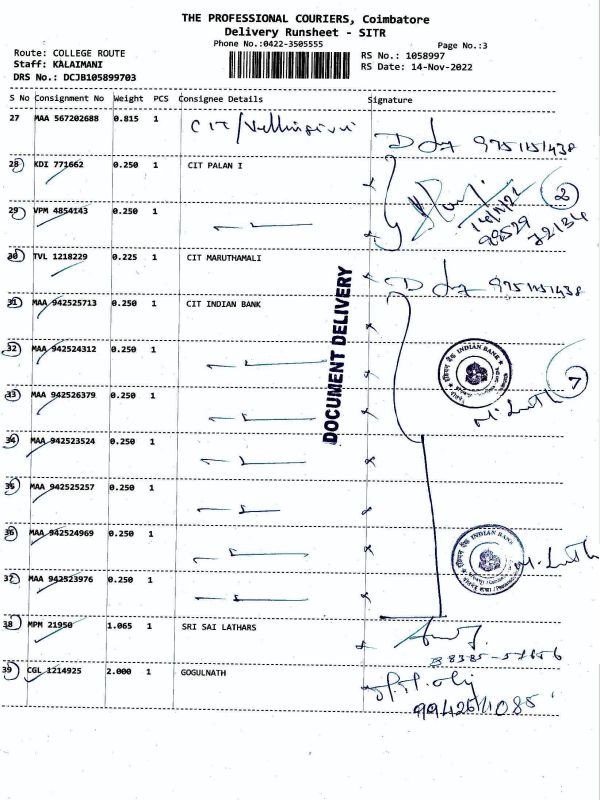 THE PROFESSIONAL COURIERS, Coimbatore
Delivery Runsheet - SITR
Phone No.:0422-3505555
Page No.:3
Route: COLLEGE ROUTE
RS No.: 1058997
Staff: KALAIMANI
RS Date: 14-Nov-2022
DRS No.: DCJB105899703
S No Consignment No Weight PCS Consignee Details Signature
27 MAA 567202688 0.815 1 CIT/ 9751151438
28 KDI 771662 0.250 1 CIT PALAN I 2
29 VPM 4854143 0.250 1 98529 72134
30 TVL 1218229 0.225 1 CIT MARUTHAMALI 9751151438
31 MAA 942525713 0.250 1 CIT INDIAN BANK
32 MAA 942524312 0.250 1 INDIAN BANK 7
33 MAA 942526379 0.250 1
34 MAA 942523524 0.250 1
35 MAA 942525257 0.250 1
36 MAA 942524969 0.250 1 INDIAN BANK
37 MAA 942523976 0.250 1
38 MPM 21950 1.065 1 SRI SAI LATHARS
39 CGL 1214925 2.000 1 GOGULNATH
DOCUMENT DELIVERY